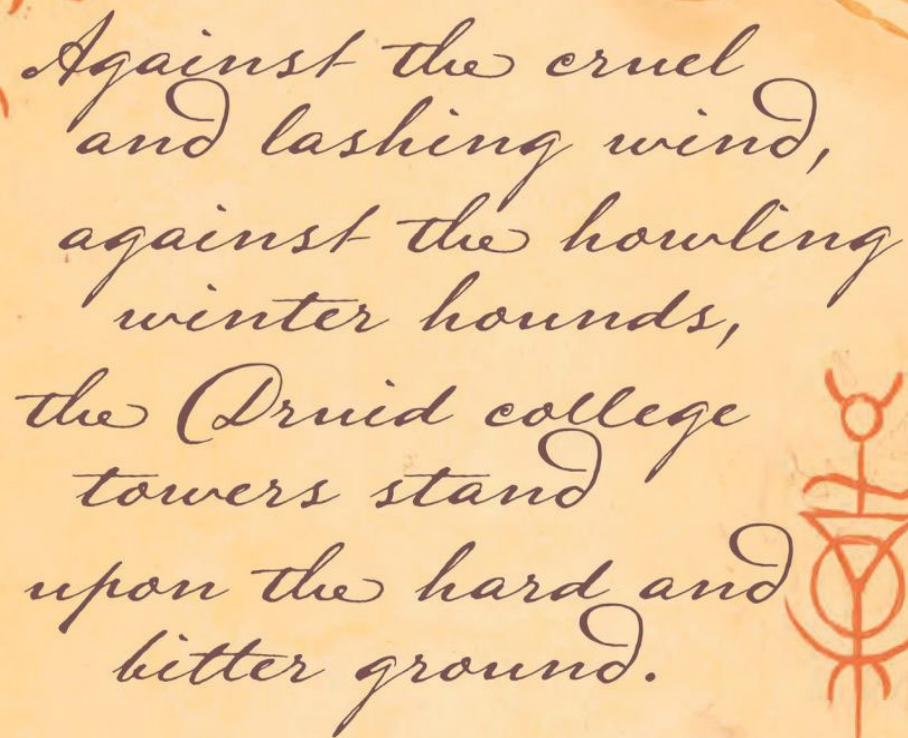 Against the cruel
and lashing wind,
against the howling
winter hounds,
the Druid college
towers stand
upon the hard and
bitter ground.